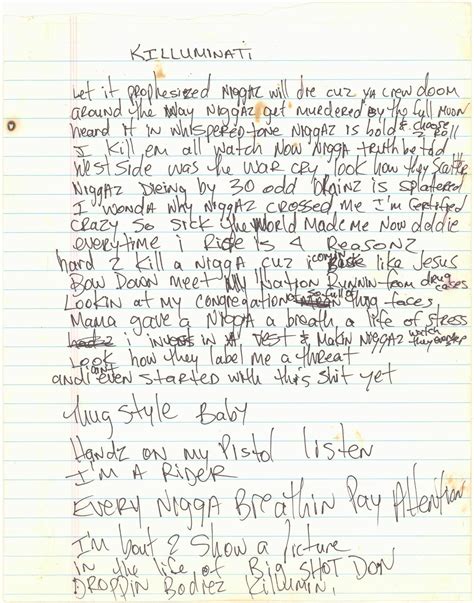 KILLUMINATI
Let it prophesized Niggaz will die cuz ya crew doom
around the way Niggaz get murdered by tha full Moon
heard it in whispered tone Niggaz is bold & choose 2 Roll
I kill em all watch Now Nigga truth be told
Westside was the war cry look how they scatter
Niggaz Dieing by 30 odd brainz is splattered
I wonda why Niggaz crossed me I'm Certified
Crazy So Sick the World Made Me Now do or die
everytime i Ride is 4 Reasonz
hard 2 kill a Nigga cuz i comin like Jesus
Bow Down meet My Nation Runnin from drug cases
Lookin at my congregation so full of thug faces
Mama gave a Nigga a breath a life of stress
i invest in A Vest & Makin Niggaz watch they step
Look how they label me a threat
and i aint even started with this shit yet
Thug Style Baby
Handz on my Pistol listen
I'm A Rider
Every Nigga Breathin Pay Attention
I'm bout 2 Show a Picture
in the life of Big SHOT DON
DROPPIN Bodiez Killumin.